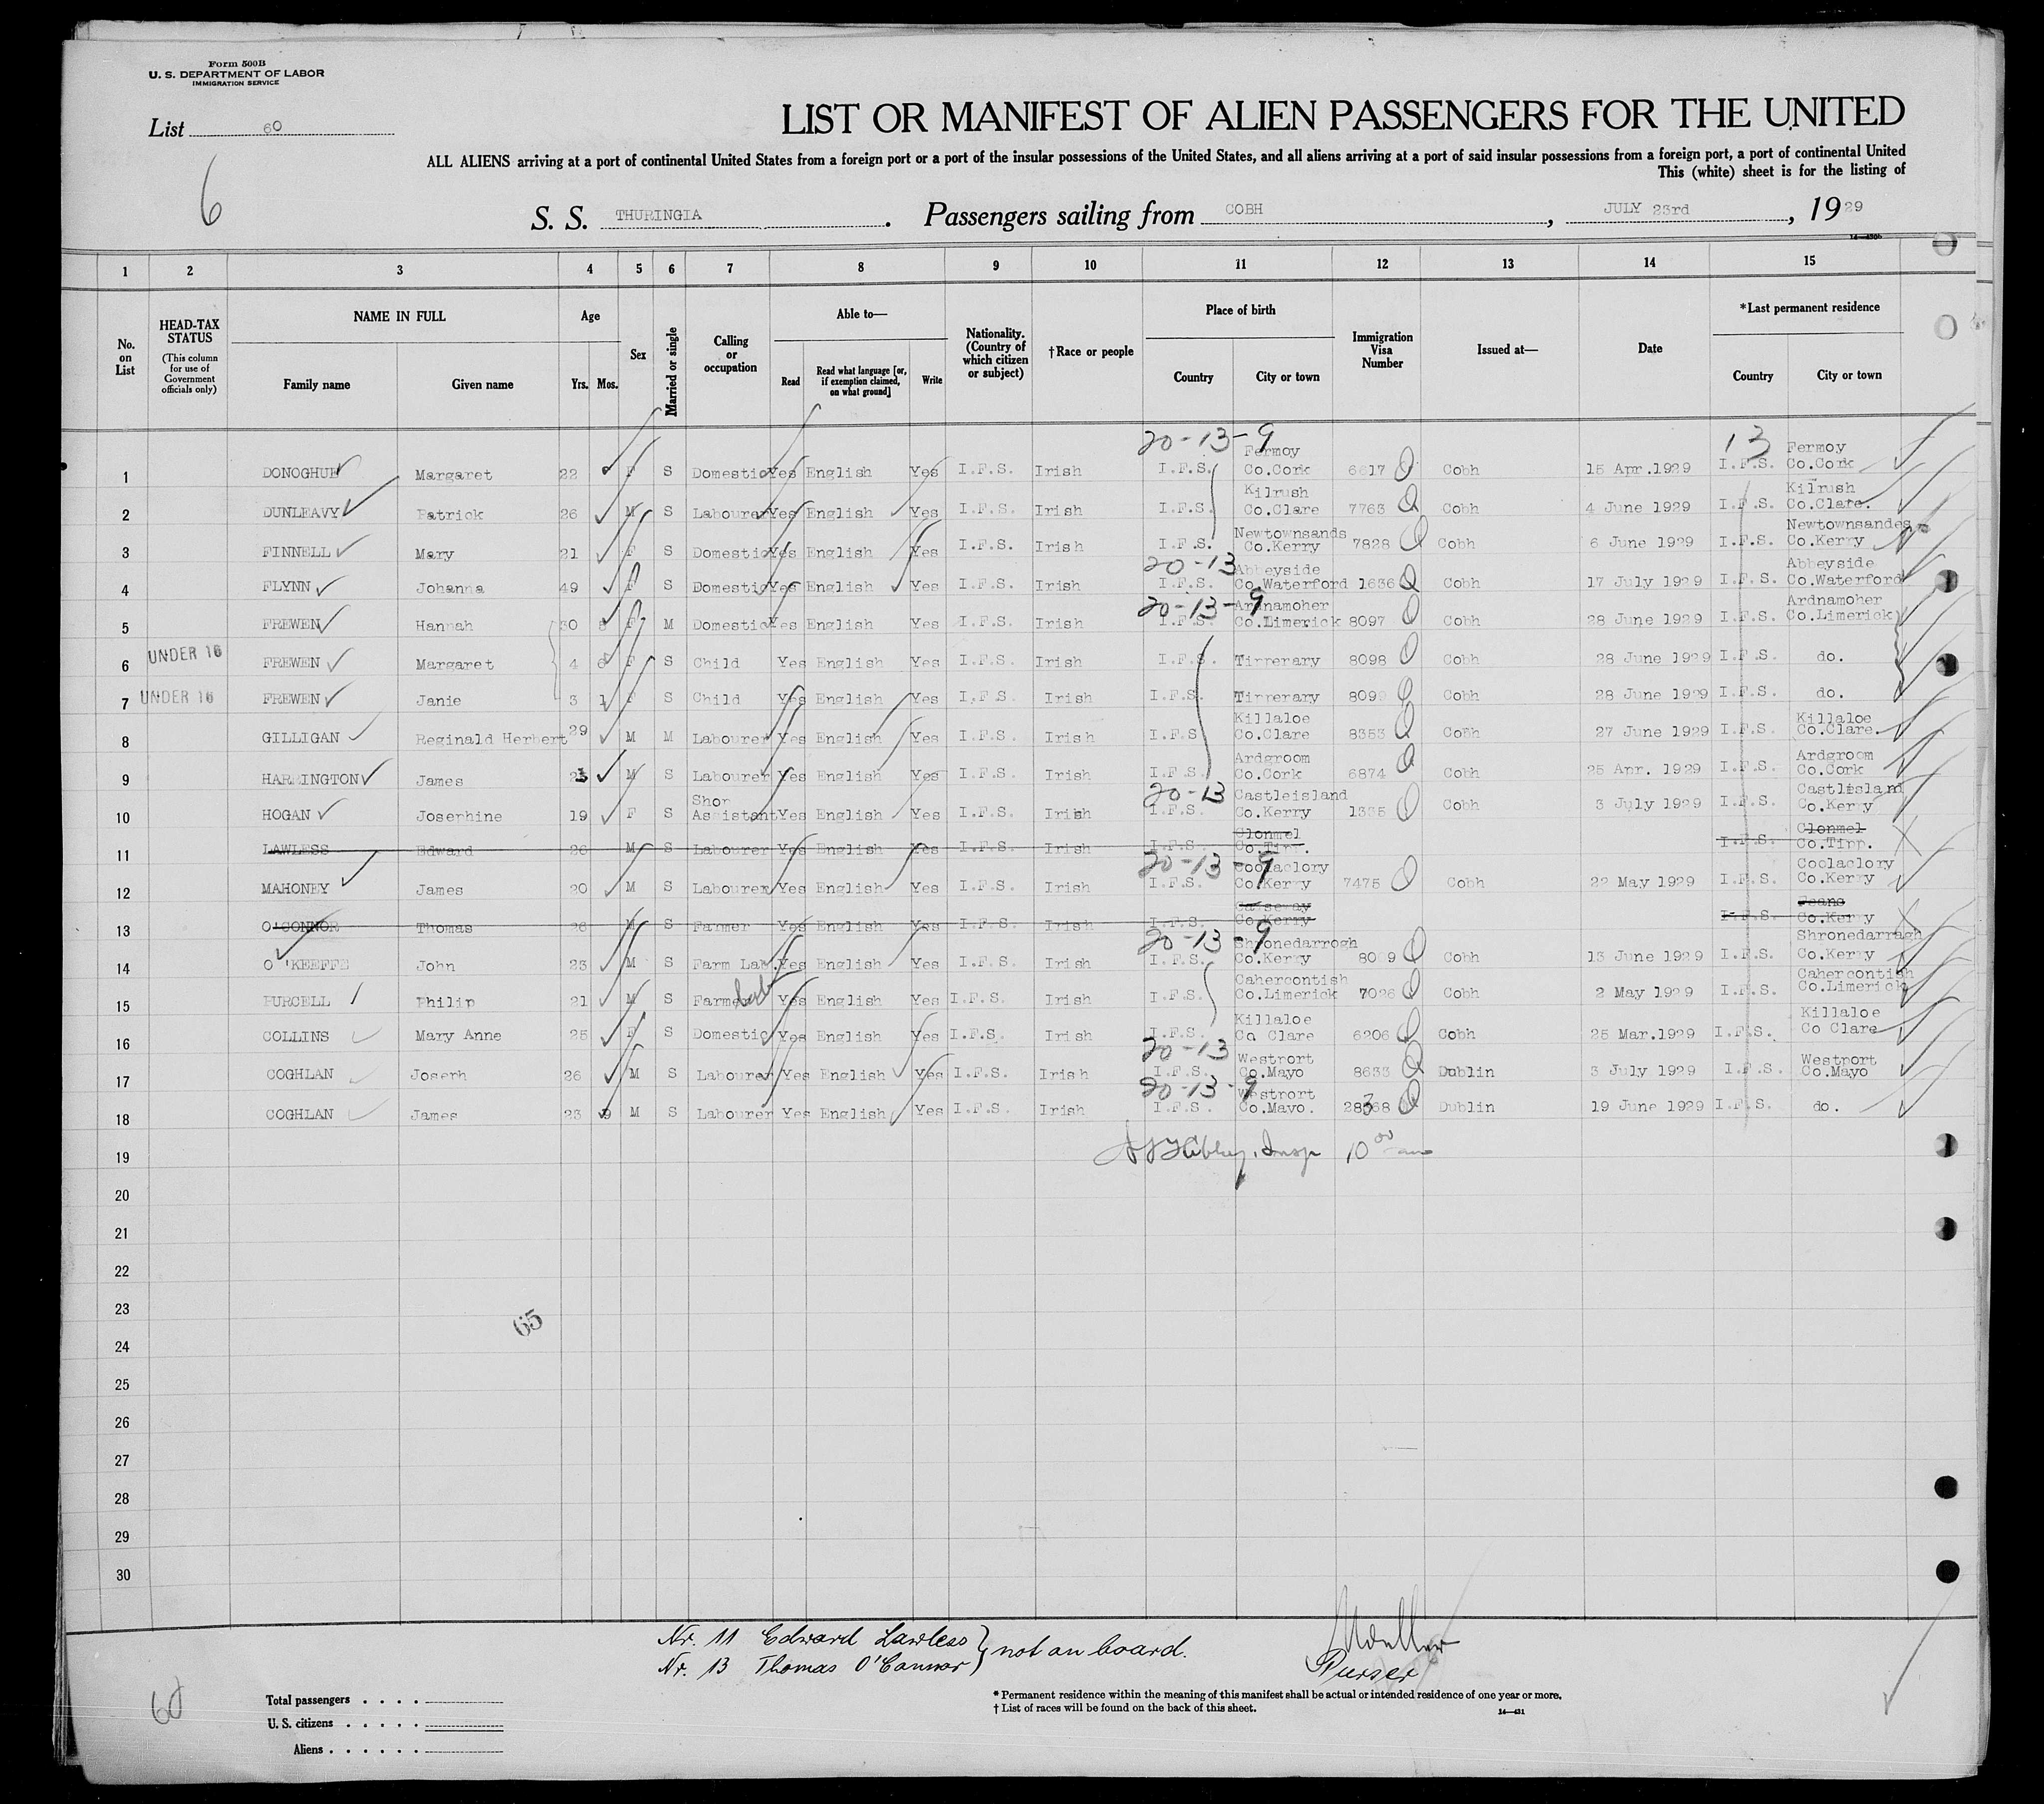 Form 500B
U. S. DEPARTMENT OF LABOR
IMMIGRATION SERVICE
List 60
LIST OR MANIFEST OF ALIEN PASSENGERS FOR THE UNITED
ALL ALIENS arriving at a port of continental United States from a foreign port or a port of the insular possessions of the United States, and all aliens arriving at a port of said insular possessions from a foreign port, a port of continental United
This (white) sheet is for the listing of
6
S. S. THURINGIA. Passengers sailing from COBH, JULY 23rd, 1929
1 2 3 4 5 6 7 8 9 10 11 12 13 14 15
No. on List
HEAD-TAX STATUS (This column for use of Government officials only)
NAME IN FULL Family name Given name
Age Yrs. Mos.
Sex
Married or single
Calling or occupation
Able to— Read Read what language [or, if exemption claimed, on what ground] Write
Nationality. (Country of which citizen or subject)
†Race or people
Place of birth Country City or town
Immigration Visa Number
Issued at—
Date
*Last permanent residence Country City or town
20-13-9 13
1 DONOGHUE Margaret 22 F S Domestic Yes English Yes I.F.S. Irish I.F.S. Fermoy Co.Cork 6617 Cobh 15 Apr.1929 I.F.S. Fermoy Co.Cork
2 DUNLEAVY Patrick 26 M S Labourer Yes English Yes I.F.S. Irish I.F.S. Kilrush Co.Clare 7763 Cobh 4 June 1929 I.F.S. Kilrush Co.Clare.
3 FINNELL Mary 21 F S Domestic Yes English Yes I.F.S. Irish I.F.S. Newtownsands Co.Kerry 7828 Cobh 6 June 1929 I.F.S. Newtownsandes Co.Kerry
20-13
4 FLYNN Johanna 49 F S Domestic Yes English Yes I.F.S. Irish I.F.S. Abbeyside Co.Waterford 1636 Cobh 17 July 1929 I.F.S. Abbeyside Co.Waterford
20-13-9
5 FREWEN Hannah 30 F M Domestic Yes English Yes I.F.S. Irish I.F.S. Ardnamoher Co.Limerick 8097 Cobh 28 June 1929 I.F.S. Ardnamoher Co.Limerick
6 UNDER 16 FREWEN Margaret 4 6 F S Child Yes English Yes I.F.S. Irish I.F.S. Tipperary 8098 Cobh 28 June 1929 I.F.S. do.
7 UNDER 16 FREWEN Janie 3 1 F S Child Yes English Yes I.F.S. Irish I.F.S. Tipperary 8099 Cobh 28 June 1929 I.F.S. do.
8 GILLIGAN Reginald Herbert 29 M M Labourer Yes English Yes I.F.S. Irish I.F.S Killaloe Co.Clare 8353 Cobh 27 June 1929 I.F.S. Killaloe Co.Clare.
9 HARRINGTON James M S Labourer Yes English Yes I.F.S. Irish I.F.S. Ardgroom Co.Cork 6874 Cobh 25 Apr. 1929 I.F.S. Ardgroom Co.Cork
20-13
10 HOGAN Josephine 19 F S Shop Assistant Yes English Yes I.F.S. Irish I.F.S. Castleisland Co.Kerry 1335 Cobh 3 July 1929 I.F.S. Castleisland Co.Kerry
11 LAWLESS Edward 26 M S Labourer Yes English Yes I.F.S. Irish I.F.S. Clonmel Co.Tipp. I.F.S. Clonmel Co.Tipp.
20-13-9
12 MAHONEY James 20 M S Labourer Yes English Yes I.F.S. Irish I.F.S. Coolaclory Co.Kerry 7475 Cobh 22 May 1929 I.F.S. Coolaclory Co.Kerry
13 O'CONNOR Thomas 26 M S Farmer Yes English Yes I.F.S. Irish I.F.S. Causeway Co.Kerry I.F.S. Co.Kerry
20-13-9
14 O'KEEFFE John 23 M S Farm Lab. Yes English Yes I.F.S. Irish I.F.S. Shronedarrogh Co.Kerry Cobh 13 June 1929 I.F.S. Shronedarragh Co.Kerry
15 PURCELL Philip 21 M S Farm Lab Yes English Yes I.F.S. Irish I.F.S. Cahercontish Co.Limerick 7026 Cobh 2 May 1929 I.F.S. Cahercontish Co.Limerick
16 COLLINS Mary Anne 25 F S Domestic Yes English Yes I.F.S. Irish I.F.S. Killaloe Co Clare 6206 Cobh 25 Mar.1929 I.F.S. Killaloe Co Clare
20-13
17 COGHLAN Joseph 26 M S Labourer Yes English Yes I.F.S. Irish I.F.S. Westport Co.Mayo 8633 Dublin 3 July 1929 I.F.S. Westport Co.Mayo
20-13-9
18 COGHLAN James 23 9 M S Labourer Yes English Yes I.F.S. Irish I.F.S. Westport Co.Mayo. 28368 Dublin 19 June 1929 I.F.S. do.
19 Insp 10 00 am
20
21
22
23
65
24
25
26
27
28
29
30
Nr. 11 Edward Lawless } not on board.
Nr. 13 Thomas O'Connor
Purser
60
Total passengers
U. S. citizens
Aliens
* Permanent residence within the meaning of this manifest shall be actual or intended residence of one year or more.
† List of races will be found on the back of this sheet.
14—431